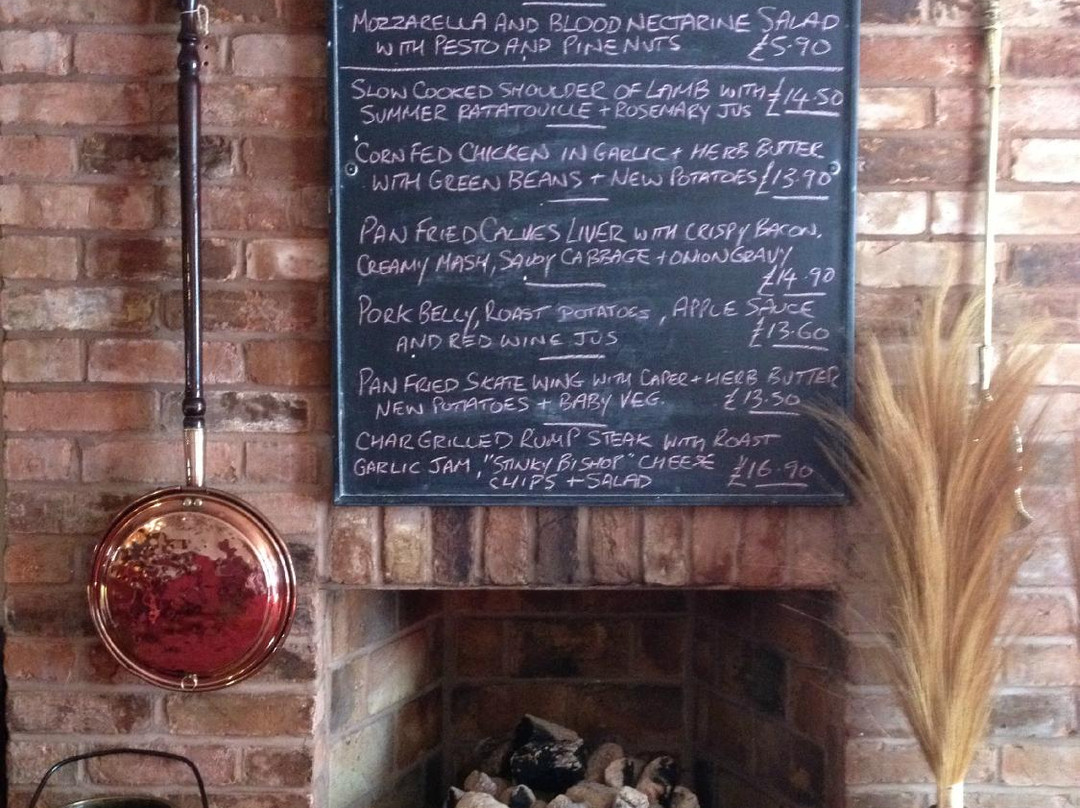 MOZZARELLA AND BLOOD NECTARINE SALAD
WITH PESTO AND PINENUTS £5.90
SLOW COOKED SHOULDER OF LAMB WITH £14.50
SUMMER RATATOUILLE + ROSEMARY JUS
CORN FED CHICKEN IN GARLIC + HERB BUTTER
WITH GREEN BEANS + NEW POTATOES £13.90
PAN FRIED CALVES LIVER WITH CRISPY BACON,
CREAMY MASH, SAVOY CABBAGE + ONION GRAVY
£14.90
PORK BELLY, ROAST POTATOES, APPLE SAUCE
AND RED WINE JUS £13.60
PAN FRIED SKATE WING WITH CAPER + HERB BUTTER
NEW POTATOES + BABY VEG. £13.50
CHARGRILLED RUMP STEAK WITH ROAST
GARLIC JAM, "STINKY BISHOP" CHEESE £16.90
CHIPS + SALAD